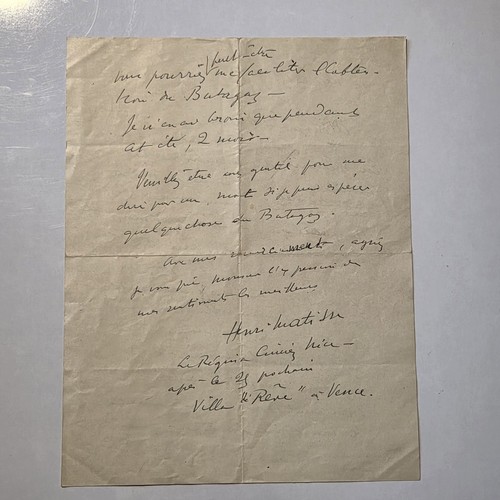 peut-être
vous pourriez me faciliter l'obten-
tion de Butagaz —
Je n'en ai besoin que pendant
cet été, 2 mois —
Veuillez être assez gentil pour me
dire par un mot si je puis espérer
quelque chose du Butagaz.
Avec mes remerciements, agréez
je vous prie, Monsieur l'expression de
mes sentiments les meilleurs
Henri Matisse
Le Régina Cimiez Nice —
après le 25 prochain
Villa "le Rêve" à Vence.